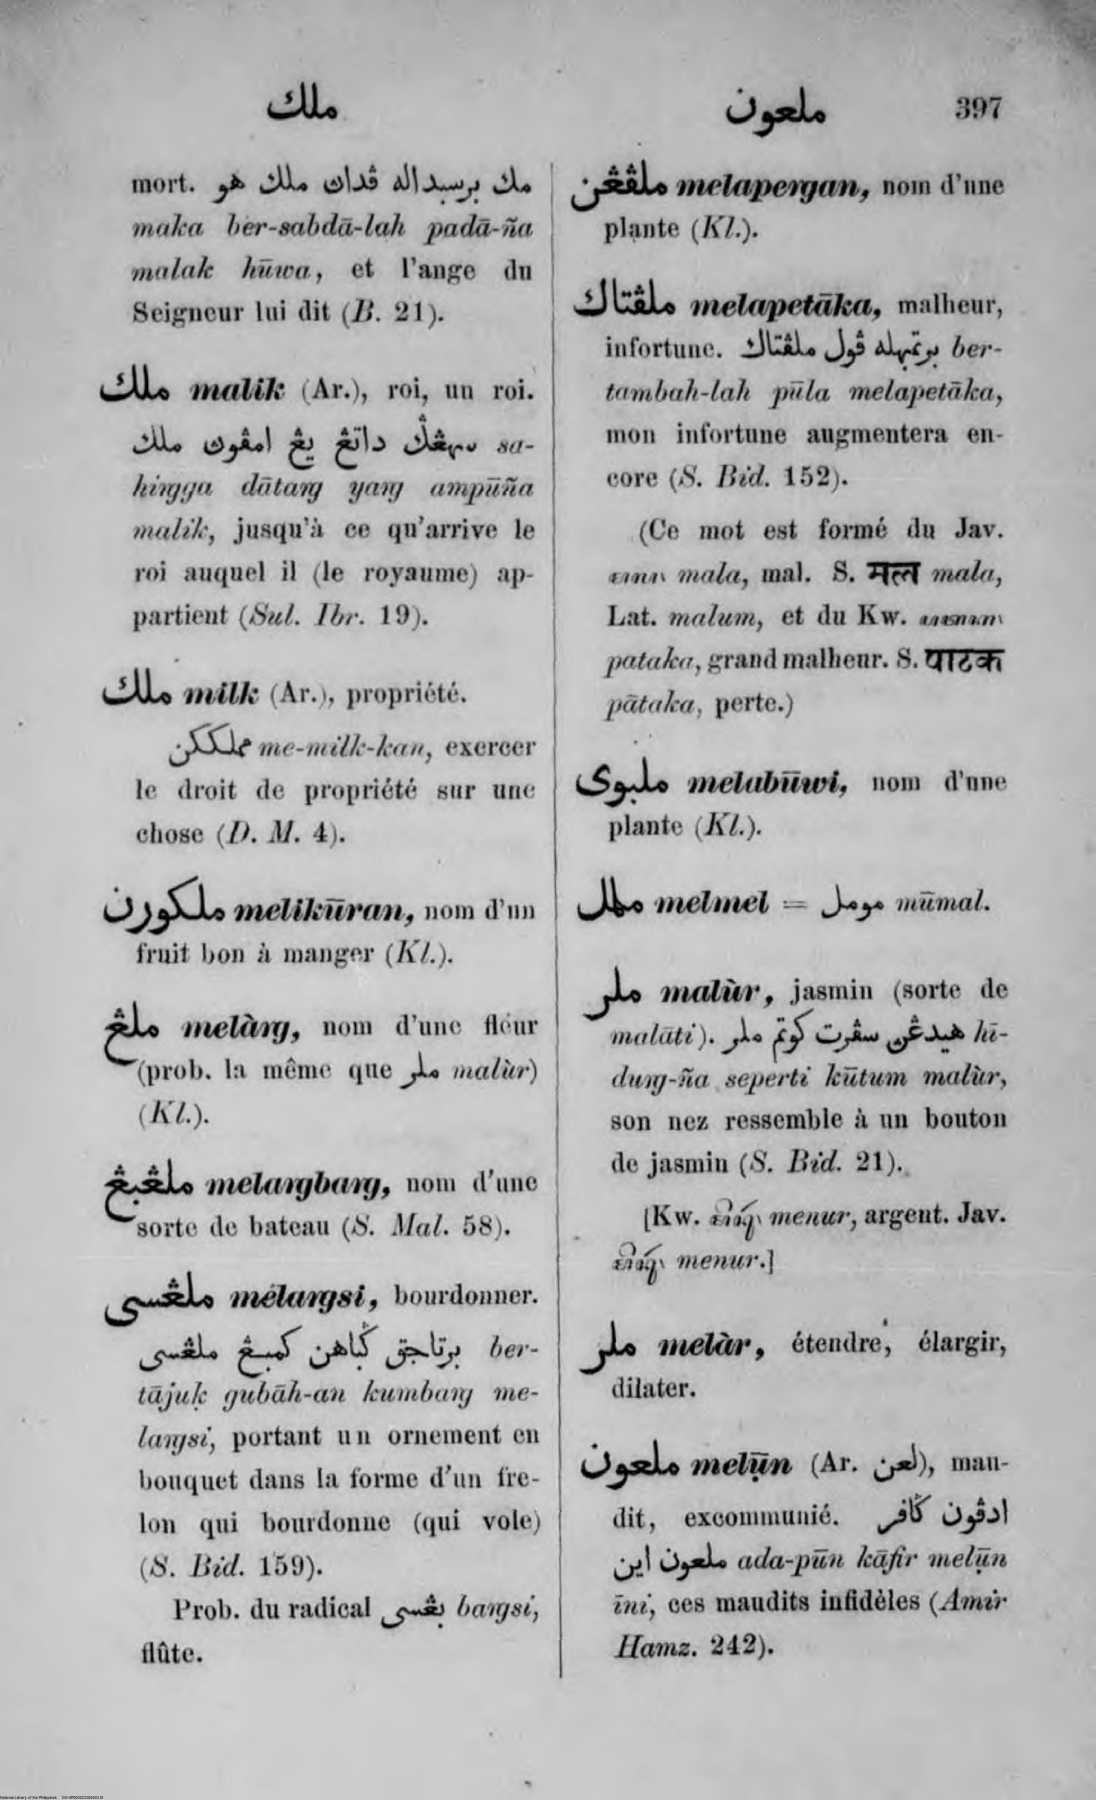 ملك
ملعون 397
mort. مك برسبداله ڤدان ملك هو
maka ber-sabdā-lah padā-ña
malak hūwa, et l'ange du
Seigneur lui dit (B. 21).
ملك malik (Ar.), roi, un roi.
سهڠݢ داتڠ يڠ امڤون ملك sa-
hiŋga dātaŋ yaŋ ampūña
malik, jusqu'à ce qu'arrive le
roi auquel il (le royaume) ap-
partient (Sul. Ibr. 19).
ملك milk (Ar.), propriété.
مملككن me-milk-kan, exercer
le droit de propriété sur une
chose (D. M. 4).
ملكورن melikūran, nom d'un
fruit bon à manger (Kl.).
ملڠ melàŋ, nom d'une fleur
(prob. la même que ملر malùr)
(Kl.).
ملڠبڠ melaŋbaŋ, nom d'une
sorte de bateau (S. Mal. 58).
ملڠسى mélaŋsi, bourdonner.
برتاجق ݢباهن كمبڠ ملڠسى ber-
tājuḳ gubāh-an kumbaŋ me-
laŋsi, portant un ornement en
bouquet dans la forme d'un fre-
lon qui bourdonne (qui vole)
(S. Bid. 159).
Prob. du radical بڠسى baŋsi,
flûte.
ملڤڠن melapeŋan, nom d'une
plante (Kl.).
ملڤتاك melapetāka, malheur,
infortune. برتمبهله ڤول ملڤتاك ber-
tambah-lah pūla melapetāka,
mon infortune augmentera en-
core (S. Bid. 152).
(Ce mot est formé du Jav.
mala, mal. S. मल mala,
Lat. malum, et du Kw.
pataka, grand malheur. S. पाटक
pātaka, perte.)
ملبوى melabūwi, nom d'une
plante (Kl.).
ململ melmel = مومل mūmal.
ملر malùr, jasmin (sorte de
malāti). هيدڠن سڤرت كوتم ملر hī-
duŋ-ña seperti kūtum malùr,
son nez ressemble à un bouton
de jasmin (S. Bid. 21).
[Kw. menur, argent. Jav.
menur.]
ملر melàr, étendre, élargir,
dilater.
ملعون melụ̄n (Ar. لعن), mau-
dit, excommunié. ادڤون كافر
ملعون اين ada-pūn kāfir melụ̄n
īni, ces maudits infidèles (Amir
Hamz. 242).